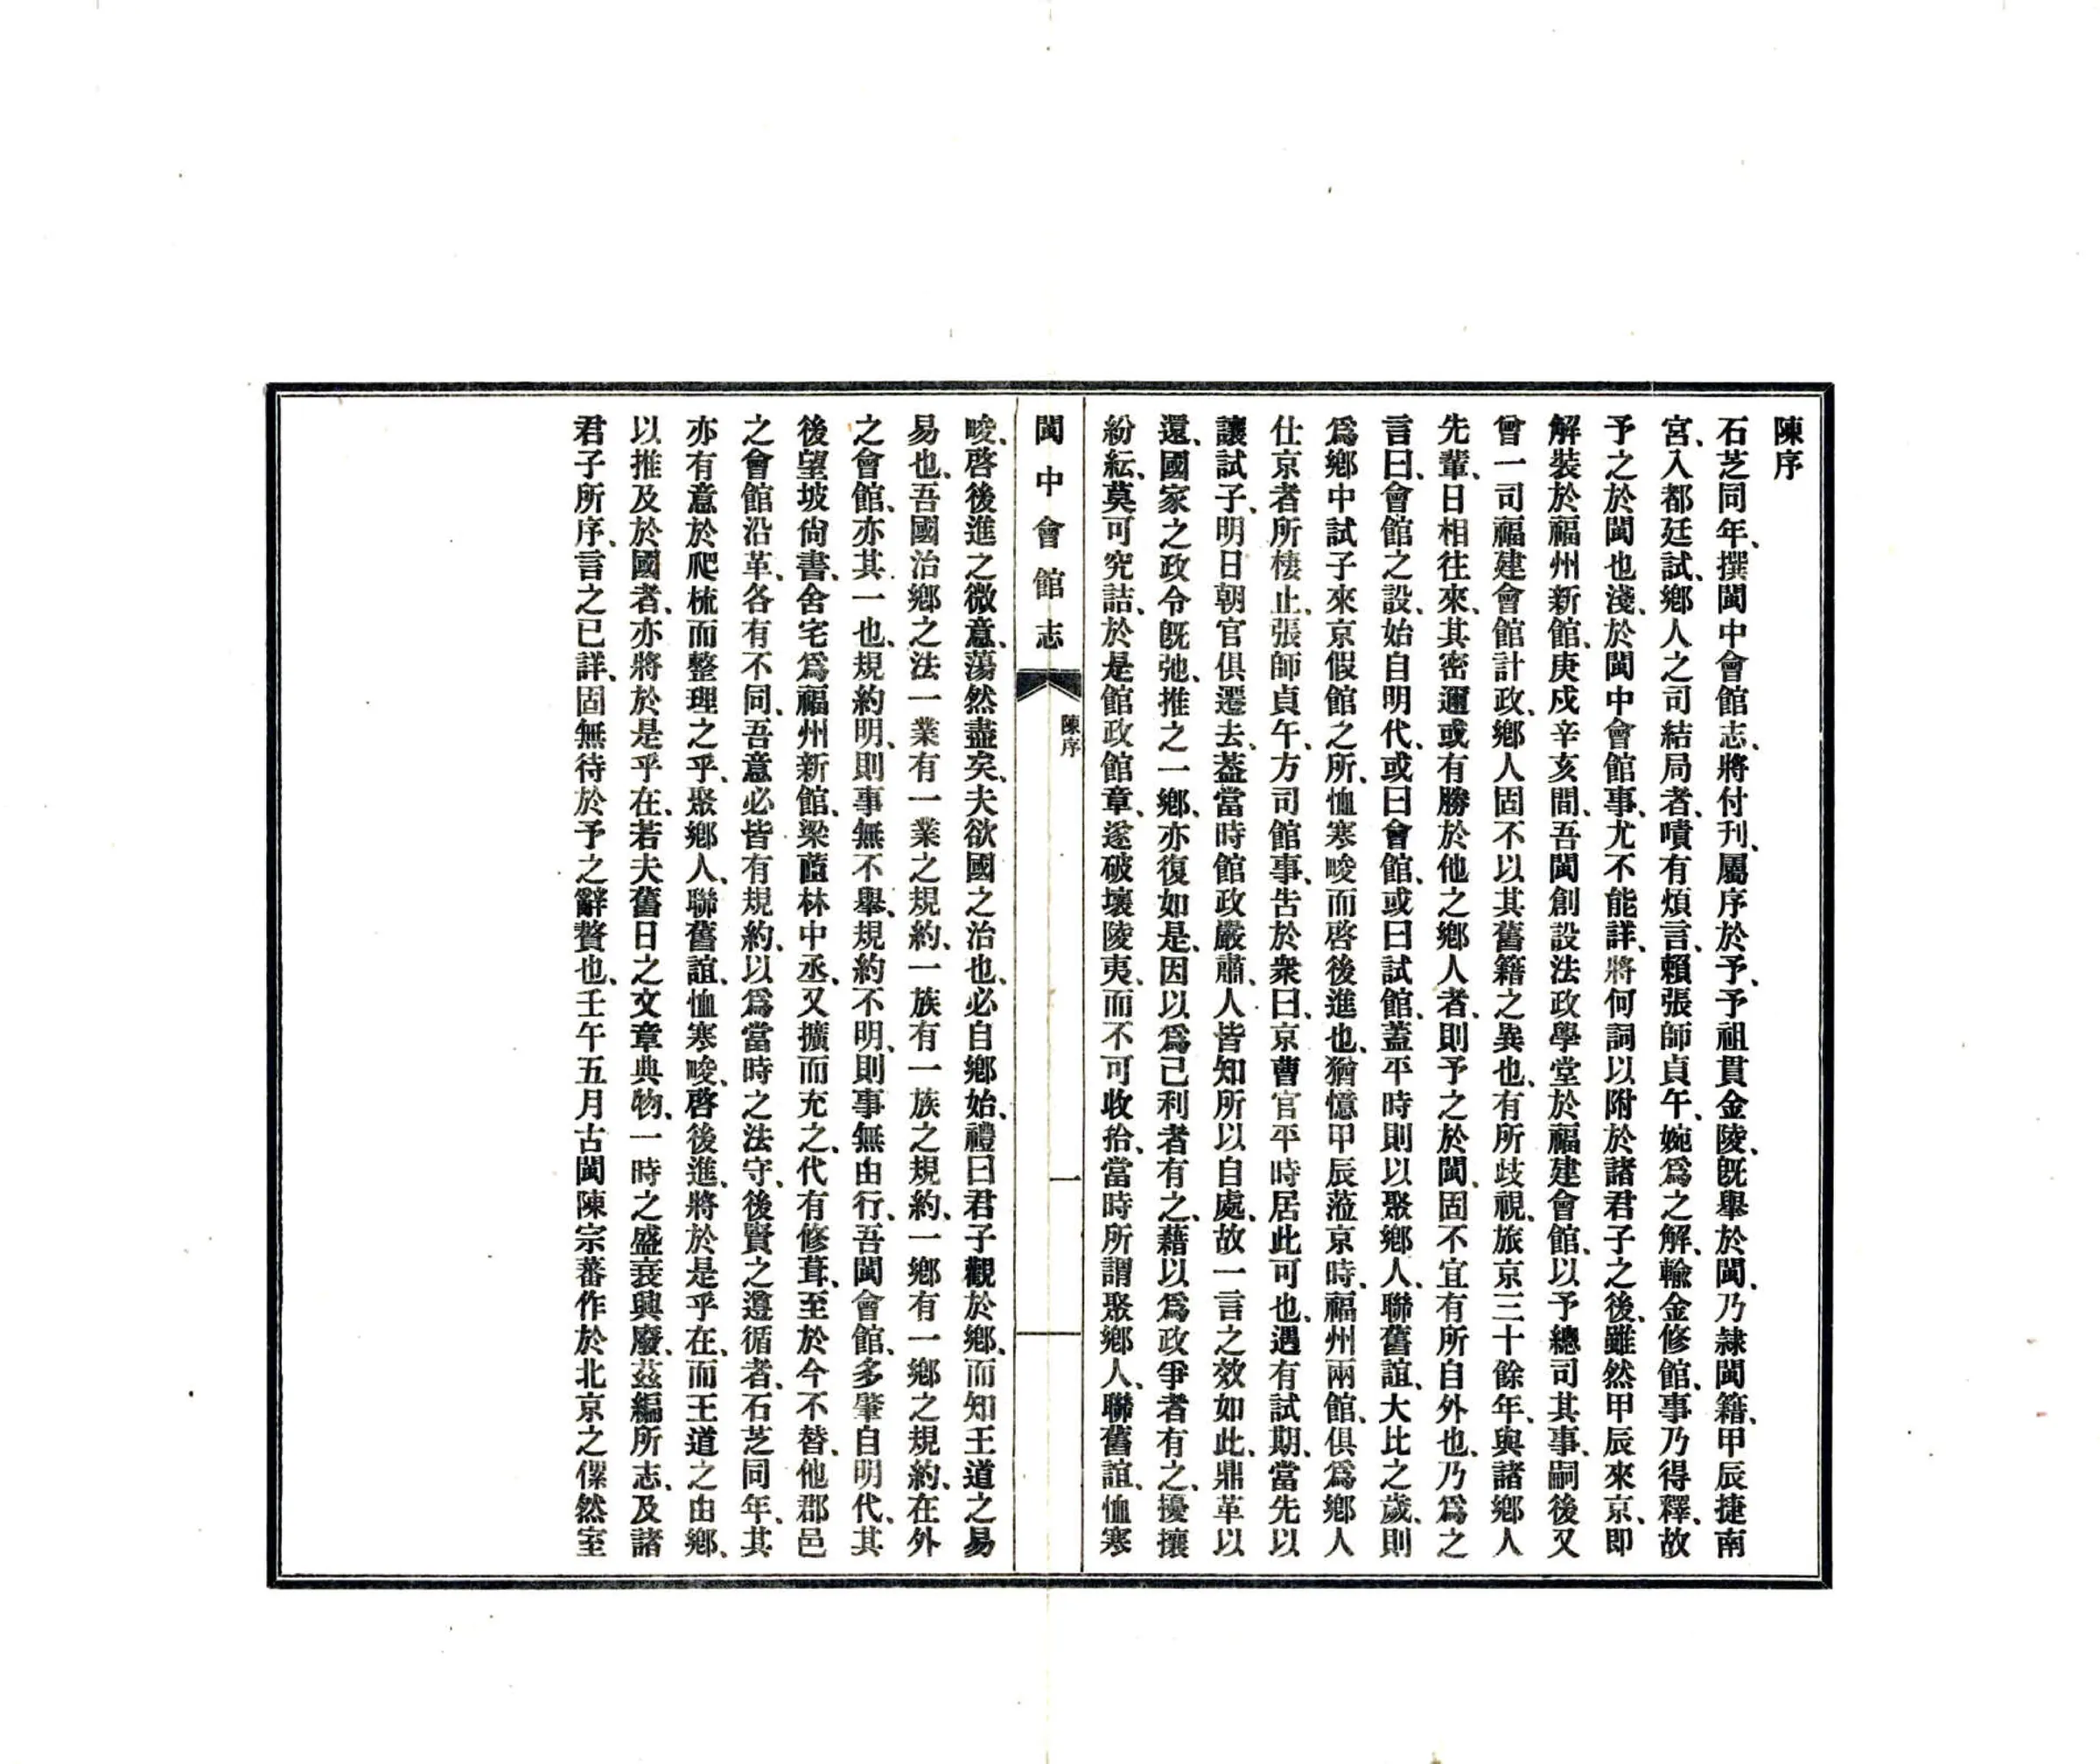 陳序
石芝同年、撰閩中會館志、將付刊、屬序於予、予祖貫金陵、旣舉於閩、乃隸閩籍、甲辰捷南
宮、入都廷試、鄉人之司結局者、嘖有煩言、賴張師貞午、婉爲之解、輸金修館、事乃得釋、故
予之於閩也淺、於閩中會館事、尤不能詳、將何詞以附於諸君子之後、雖然甲辰來京、即
解裝於福州新館、庚戌辛亥間、吾閩創設法政學堂於福建會館、以予總司其事、嗣後又
曾一司福建會館計政、鄉人固不以其舊籍之異也、有所歧視、旅京三十餘年、與諸鄉人
先輩、日相往來、其密邇或有勝於他之鄉人者、則予之於閩、固不宜有所自外也、乃爲之
言曰、會館之設、始自明代、或曰會館、或曰試館、蓋平時則以聚鄉人、聯舊誼、大比之歲、則
爲鄉中試子來京假館之所、恤寒畯而啓後進也、猶憶甲辰蒞京時、福州兩館、俱爲鄉人
仕京者所棲止、張師貞午、方司館事、告於衆曰、京曹官平時居此可也、遇有試期、當先以
讓試子、明日朝官俱遷去、蓋當時館政嚴肅、人皆知所以自處、故一言之效如此、鼎革以
還、國家之政令旣弛、推之一鄉、亦復如是、因以爲己利者有之、藉以爲政爭者有之、擾攘
紛紜、莫可究詰、於是館政館章、遂破壞陵夷、而不可收拾、當時所謂聚鄉人、聯舊誼、恤寒
閩中會館志
陳序
一
畯、啓後進之微意、蕩然盡矣、夫欲國之治也、必自鄉始、禮曰君子觀於鄉、而知王道之易
易也、吾國治鄉之法一業有一業之規約、一族有一族之規約、一鄉有一鄉之規約、在外
之會館、亦其一也、規約明、則事無不舉、規約不明、則事無由行、吾閩會館、多肇自明代、其
後望坡尙書、舍宅爲福州新館、梁茝林中丞、又擴而充之、代有修葺、至於今不替、他郡邑
之會館沿革、各有不同、吾意必皆有規約、以爲當時之法守、後賢之遵循者、石芝同年、其
亦有意於爬梳而整理之乎、聚鄉人、聯舊誼、恤寒畯、啓後進、將於是乎在、而王道之由鄉、
以推及於國者、亦將於是乎在、若夫舊日之文章典物、一時之盛衰興廢、茲編所志、及諸
君子所序、言之已詳、固無待於予之辭贅也、壬午五月古閩陳宗蕃作於北京之傫然室